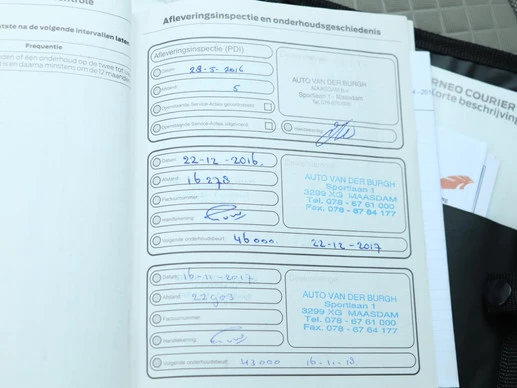 tatste na de volgende intervallen laten
Frequentie
Afleveringsinspectie en onderhoudsgeschiedenis
Afleveringsinspectie (PDI)
Datum: 28-5-2016
Afstand: 5
Openstaande Service-Acties gecontroleerd
Openstaande Service-Acties uitgevoerd
Handtekening:
AUTO VAN DER BURGH
MAASDAM B.V.
Sportlaan 1 - Maasdam
Datum: 22-12-2016.
Afstand: 16 273
Factuurnummer:
Handtekening:
Volgende onderhoudsbeurt: 46000. 22-12-2017
AUTO VAN DER BURGH
Sportlaan 1
3299 XG MAASDAM
Tel. 078 - 67 61 000
Fax. 078 - 67 64 177
Datum: 16-11-2017
Afstand: 22903
Factuurnummer:
Handtekening:
Volgende onderhoudsbeurt: 43000 16-11-18
AUTO VAN DER BURGH
Sportlaan 1
3299 XG MAASDAM
Tel. 078 - 67 61 000
Fax. 078 - 67 64 177
RNEO COURIER
Korte beschrijving